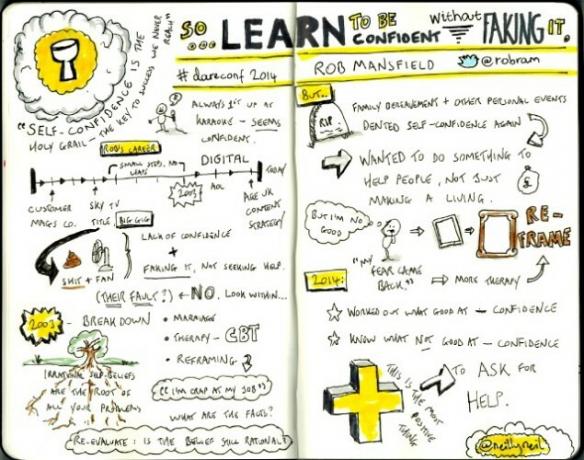 SO... LEARN TO BE CONFIDENT without FAKING IT.
#dareconf 2014
ROB MANSFIELD @robram
"SELF-CONFIDENCE IS THE
HOLY GRAIL - THE KEY TO SUCCESS WE NEVER
REACH"
ALWAYS 1ST UP AT
KARAOKE - SEEMS
CONFIDENT.
ROB'S CAREER
SMALL STEPS, NO
LEAPS
DIGITAL
TODAY
2003
AOL
CUSTOMER
MAGS CO.
SKY TV
TITLE.
BIG GIG
AGE UK
CONTENT
STRATEGY
SHIT + FAN
LACK OF CONFIDENCE
+
FAKING IT, NOT SEEKING HELP.
(THEIR FAULT?) ← NO. LOOK WITHIN...
2003 - BREAKDOWN
• MARRIAGE
• THERAPY - CBT
• REFRAMING
IRRATIONAL SELF-BELIEFS
ARE THE ROOT OF
ALL YOUR PROBLEMS
"I'M CRAP AT MY JOB"
WHAT ARE THE FACTS?
RE-EVALUATE: IS THE BELIEF STILL RATIONAL?
BUT...
RIP
FAMILY BEREAVEMENT + OTHER PERSONAL EVENTS
DENTED SELF-CONFIDENCE AGAIN
WANTED TO DO SOMETHING TO
HELP PEOPLE, NOT JUST
MAKING A LIVING.
£
BUT I'M NO
GOOD
RE-
FRAME
2014:
"MY
FEAR CAME
BACK." → MORE THERAPY
WORKED OUT WHAT GOOD AT - CONFIDENCE
KNOW WHAT NOT GOOD AT - CONFIDENCE
TO ASK FOR
HELP.
THIS IS THE MOST
POSITIVE
THING
@neillyneil